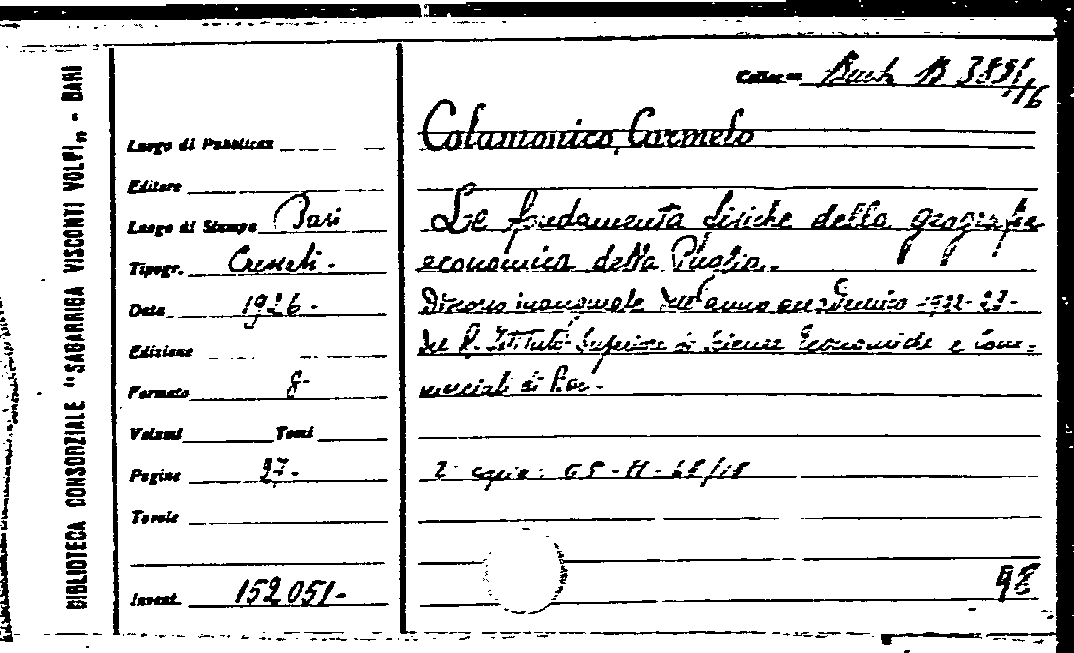 BIBLIOTECA CONSORZIALE "SAGARRIGA VISCONTI VOLPI„ - BARI
Colloc.ne B 3881/16
Colamonico, Carmelo
Luogo di Pubblicaz.
Editore
Luogo di Stampa Bari
Le fondamenta fisiche della geografia
Tipogr. Cressati -
economica della Puglia.-
Data 1926 -
Discorso inaugurale dell'anno accademico 1922-23-
Edizione
del R. Istituto Superiore di Scienze Economiche e Com-
Formato 8-
merciali di Bari -
Volumi Tomi
Pagine 27-
2ª copia: G5-H-68/18
Tavole
98
Invent. 152051-